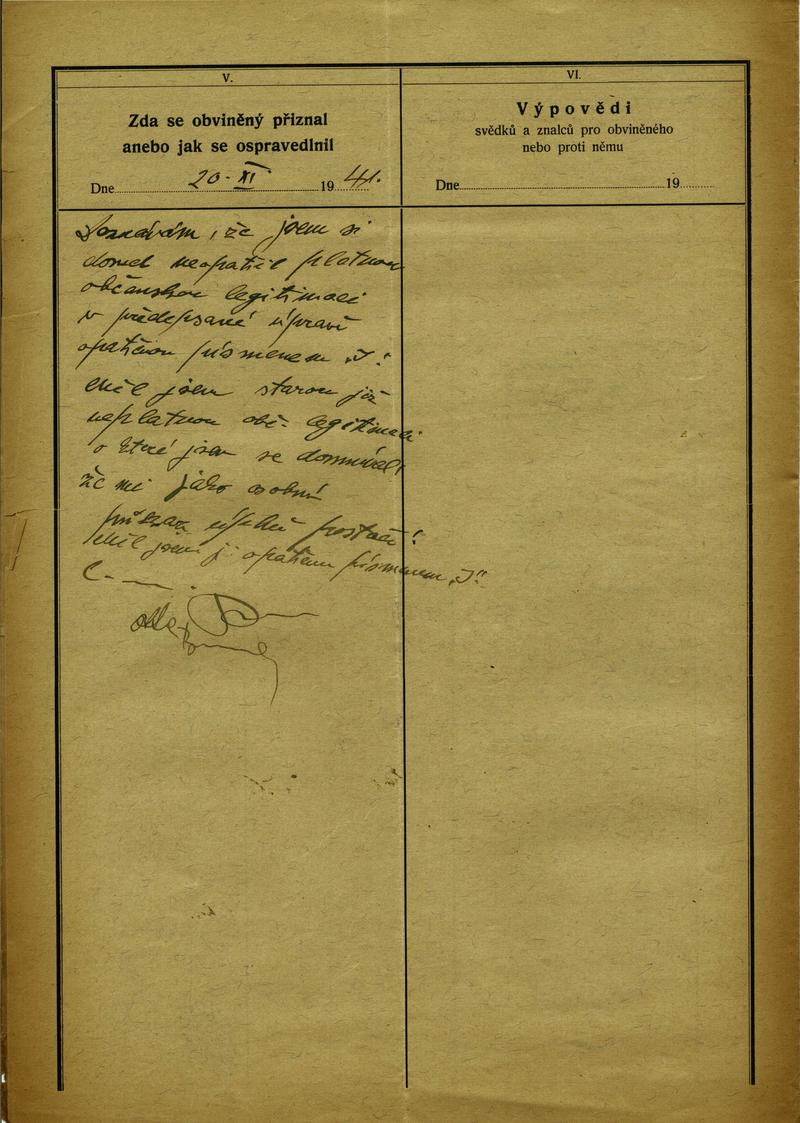 V.
Zda se obviněný přiznal
anebo jak se ospravedlnil
Dne 20. XI 1941.
Doznávám, že jsem si
dosud neopatřil platnou
občanskou legitimaci
v předepsané úpravě
opatřenou písmenem „J“.
Měl jsem starou již
neplatnou obč. legitimaci
o které jsem se domníval,
že mi jako osobní
průkaz úplně postačí!
Měl jsem ji opatřenu písmenem „J“
VI.
Výpovědi
svědků a znalců pro obviněného
nebo proti němu
Dne 19